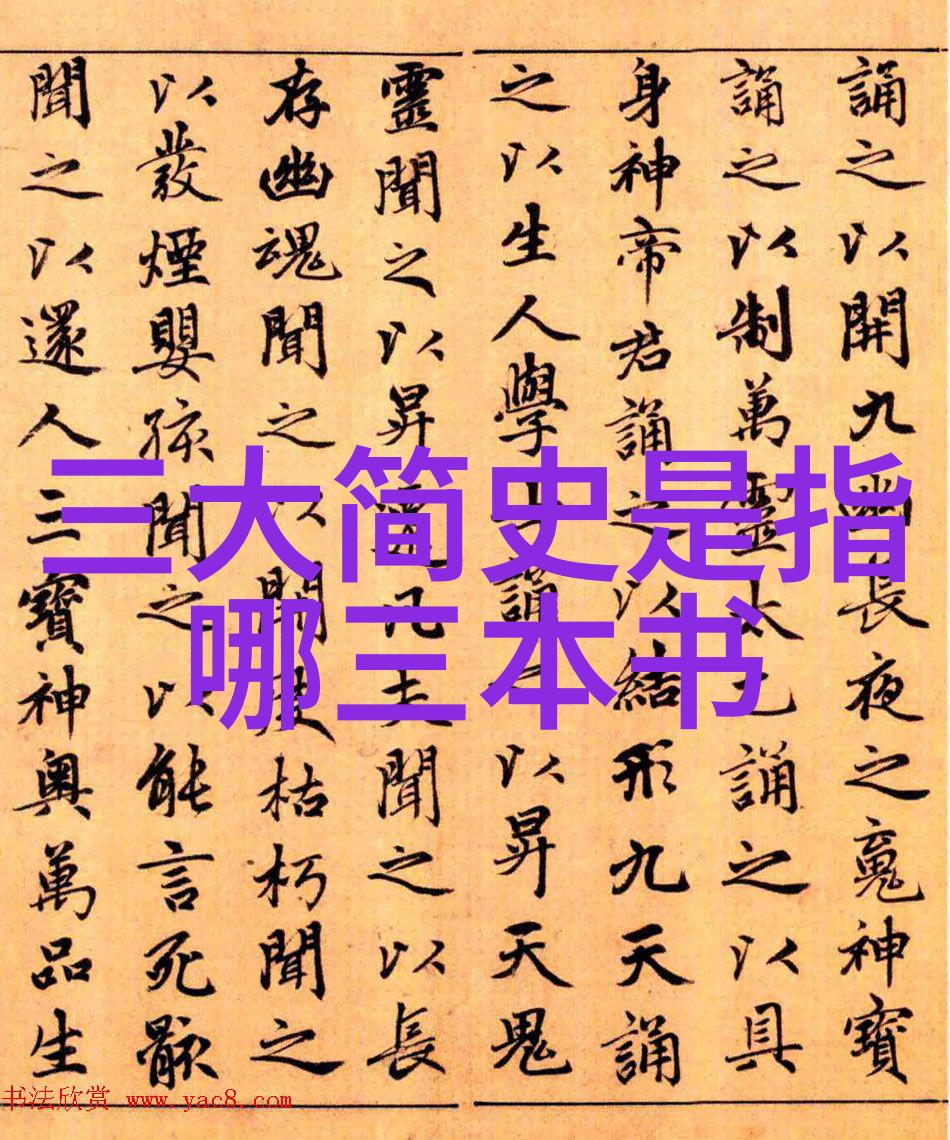 三大简史是指
哪三本书
誦之以開九幽長夜之魂神寶
誦之以制萬靈太乙誦之以具
身神帝君誦之以結形九天誦
之以生人學士誦之以昇天鬼
靈聞之以昇凡夫聞之以長
存幽魂聞之以開枯朽聞之
以發煙嬰孩聞之以能言死骸
聞之以還人三寶神奧萬品生
书法欣赏 www.yac8.com